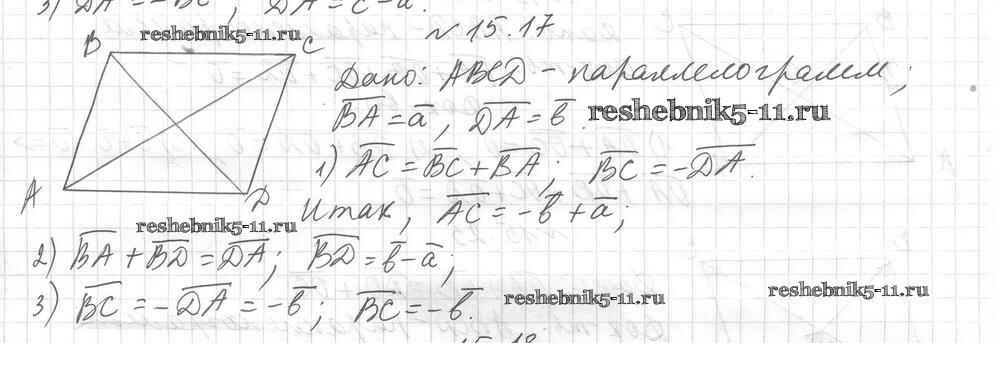 3) DA = -BC; DA = c - a.
№ 15.17
reshebnik5-11.ru
B C
Дано: ABCD - параллелограмм;
BA = a, DA = b. reshebnik5-11.ru
1) AC = BC + BA; BC = -DA.
A D
Итак, AC = -b + a;
reshebnik5-11.ru
2) BA + BD = DA; BD = b - a;
3) BC = -DA = -b; BC = -b.
reshebnik5-11.ru reshebnik5-11.ru